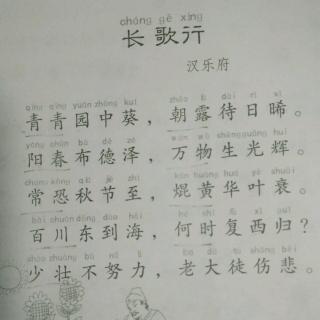 cháng gē xíng
长歌行
汉乐府
qīng qīng yuán zhōng kuí zhāo lù dài rì xī
青青园中葵，朝露待日晞。
yáng chūn bù dé zé wàn wù shēng guāng huī
阳春布德泽，万物生光辉。
cháng kǒng qiū jié zhì
常恐秋节至，焜黄华叶衰。
bǎi chuān dōng dào hǎi hé shí fù xī guī
百川东到海，何时复西归？
shào zhuàng bù nǔ lì lǎo dà tú shāng bēi
少壮不努力，老大徒伤悲。